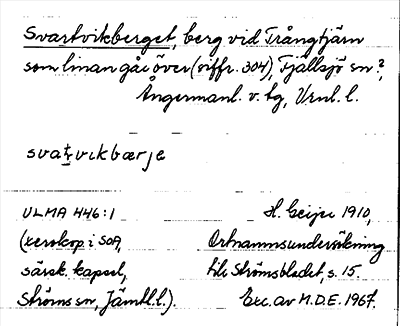 Svartvikberget, berg vid Trångtjärn
som linan går över (siffr. 304), Fjällsjö sn?,
Ångermanl. v. tg, Vrnl. l.
svatvikbærje
ULMA 446:1 H. Geijer 1910,
(xerokop. i SOA, Ortnamnsundersökning
särsk. kapsel, till Strömsbladet, s. 15.
Ströms sn, Jämtl. l.). Exc. av M.D.E. 1967.